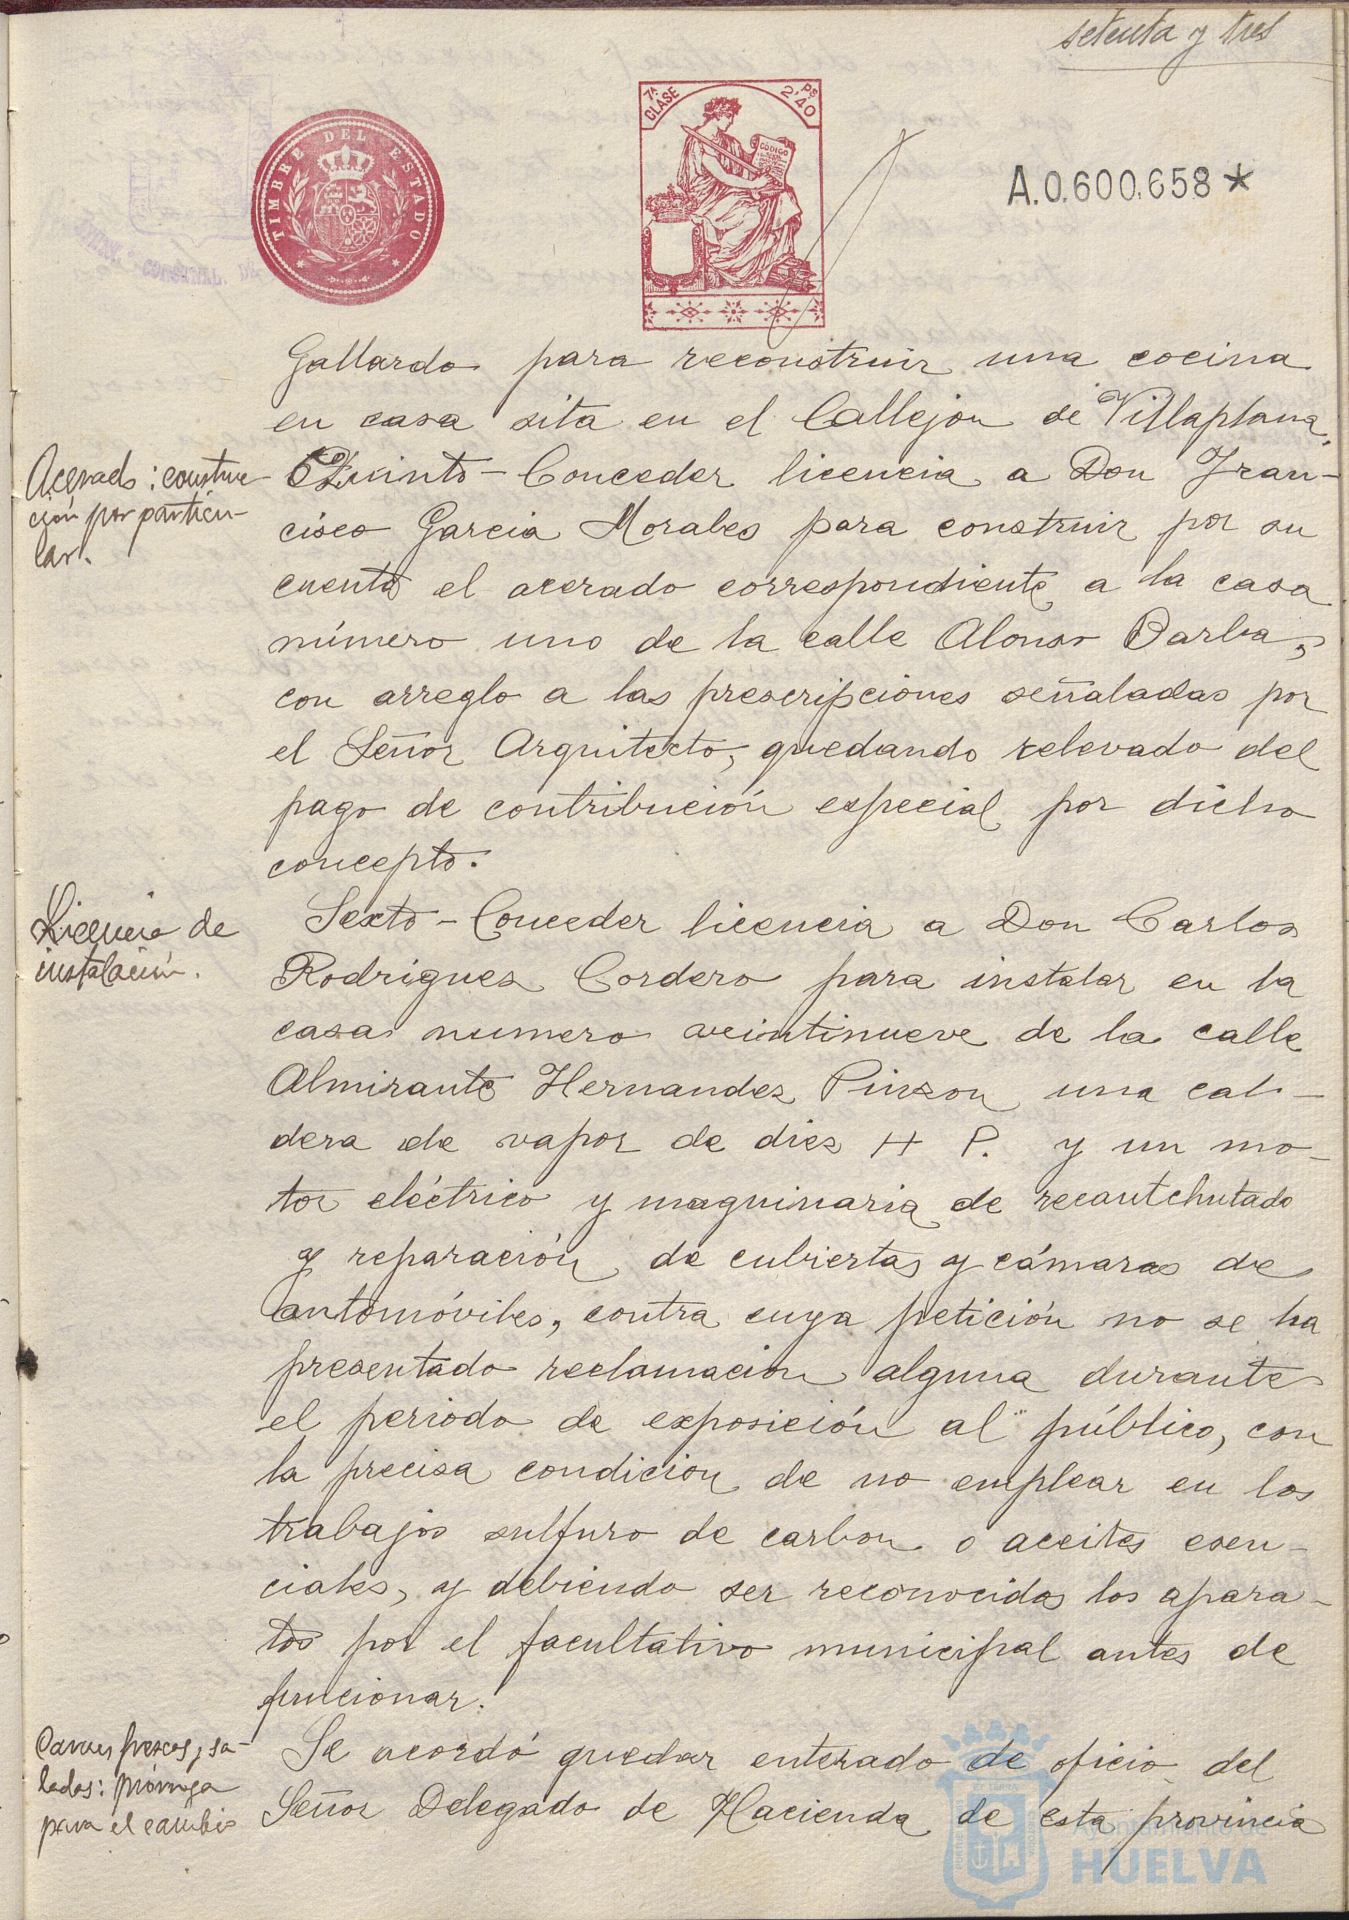 setenta y tres
TIMBRE DEL ESTADO
7ª CLASE
2'40 Ps
CODIGO
A.0.600.658*
Gallardo para reconstruir una cocina
en casa sita en el Callejon de Villaplana.
Acerado: construc-
ción por particu-
lar.
Quinto - Conceder licencia a Don Fran-
cisco Garcia Morales para construir por su
cuenta el acerado correspondiente a la casa
número uno de la calle Alonso Barba,
con arreglo a las prescripciones señaladas por
el Señor Arquitecto, quedando relevado del
pago de contribución especial por dicho
concepto.
Licencia de
instalación.
Sexto - Conceder licencia a Don Carlos
Rodriguez Cordero para instalar en la
casa numero veintinueve de la calle
Almirante Hernandez Pinzon una cal-
dera de vapor de diez H P. y un mo-
tor eléctrico y maquinaria de recautchutado
y reparación de cubiertas y cámaras de
automóviles, contra cuya petición no se ha
presentado reclamacion alguna durante
el periodo de exposición al público, con
la precisa condicion de no emplear en los
trabajos sulfuro de carbon o aceites esen-
ciales, y debiendo ser reconocidos los apara-
tos por el facultativo municipal antes de
funcionar.
Carnes frescas y sa-
ladas: prórroga
para el cambio
Se acordó quedar enterado de oficio del
Señor Delegado de Hacienda de esta provincia
Ayuntamiento de
HUELVA